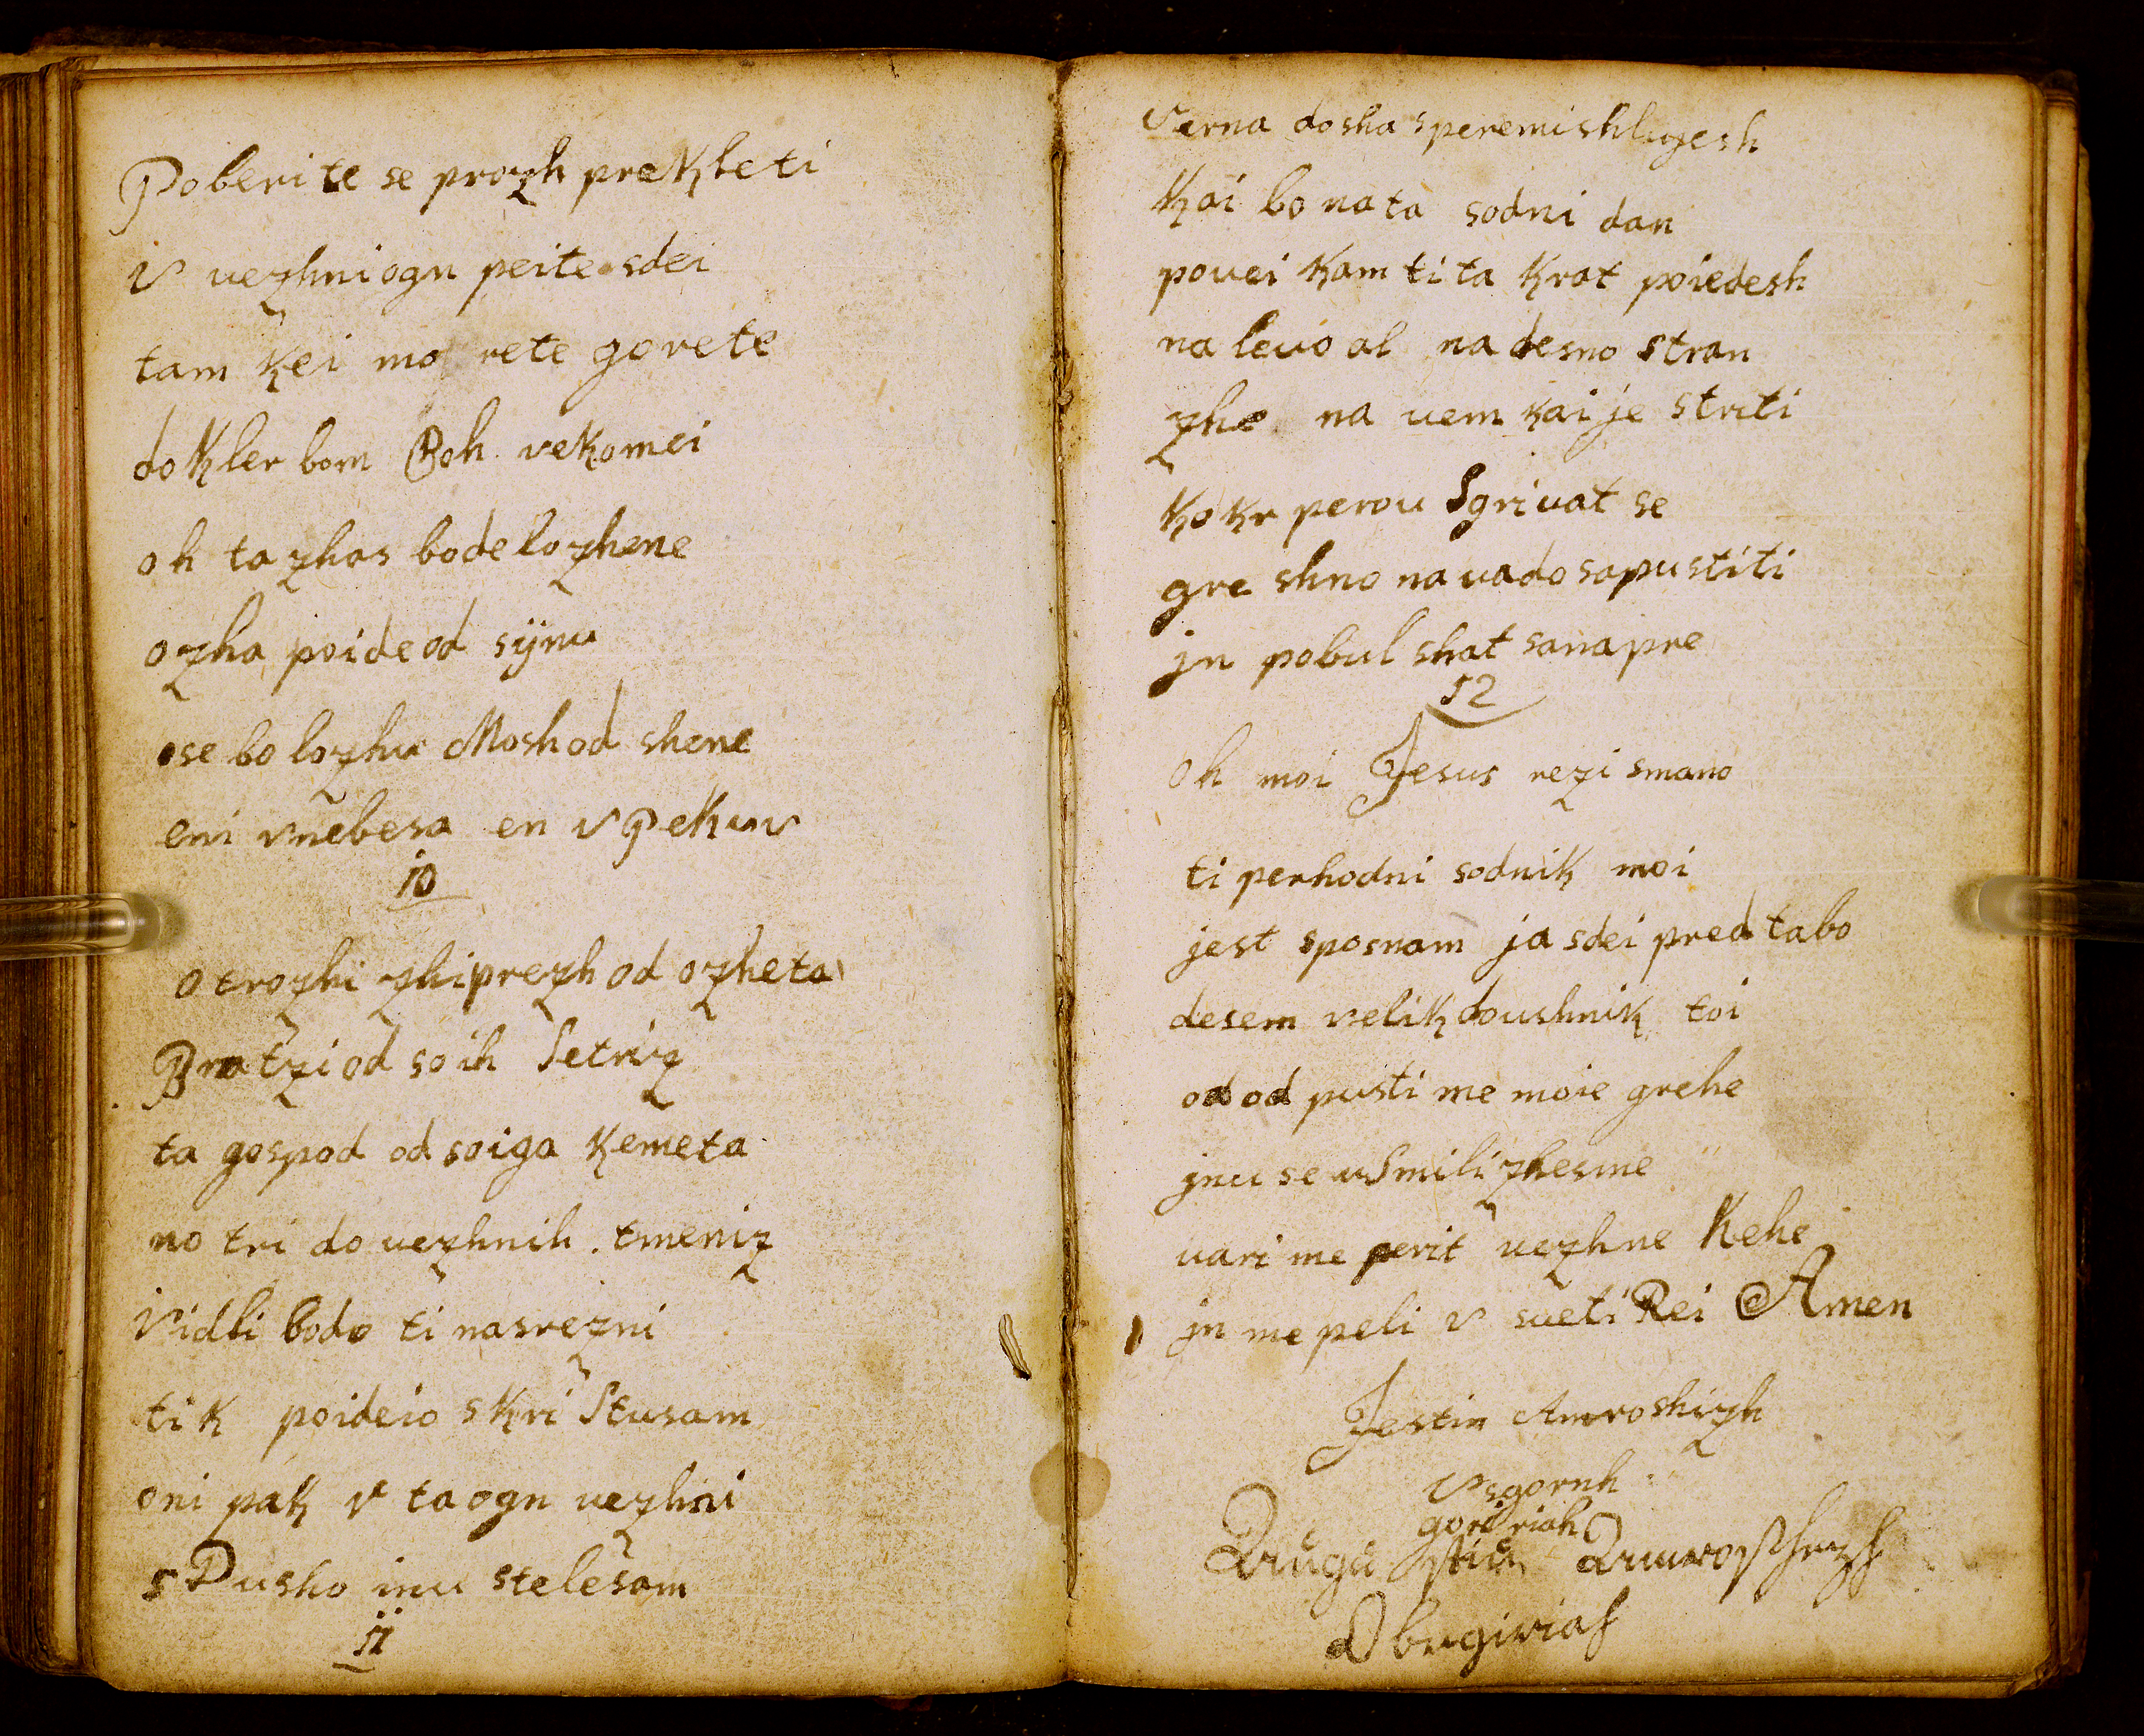 Poberite se prozh prekleti
v vezhni ogn peite sdei
tam kei mo rete gorete
dokler bom Boh vekomei
oh ta zhas bode lozhene
ozha poide od sijnu
se bo lozhu Mosh od shene
eni vnebesa en v Pekuv
10
otrozhi zhiprezh od ozheta
Bratzi od so ih Setriz
ta gospod od soiga kemeta
no tri do vezhnih tmeniz
Vidli bodo ti nasrezni
tik poideio skri Stusam
oni pak v ta ogn vezhni
s Dusho inu stelesam
11
Verna dosha speremishlugesh
Kai bo na ta sodni dan
povei kam ti ta krat poiedesh
na levo al na desno stran
zhe na vem kai je striti
kokr perou Sgrivat se
gre shno navado sapustiti
jn pobul shat sanapre
12
oh moi Jesus rezi smano
ti perhodni sodnik moi
jest sposnam ja sdei pred tabo
desem velik doushnik toi
od od pusti me moie grehe
jnu se uSmili zhesme
vari me perit vezhne Kehe
jn me peli v sveti Rei Amen
Jestin Amroshizh
Vsgornh
goririah
Augustin
Obrgiriah